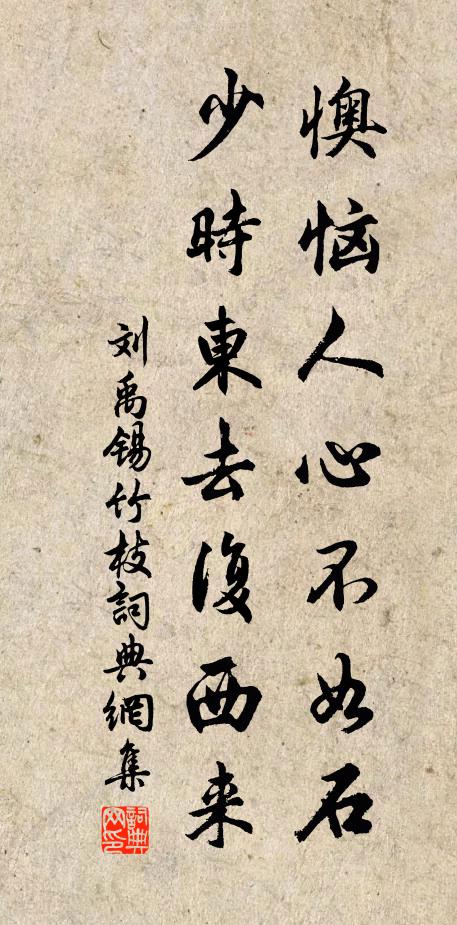 懊恼人心不如石
少時東去復西来
刘禹锡竹枝詞典網集
詞典网印